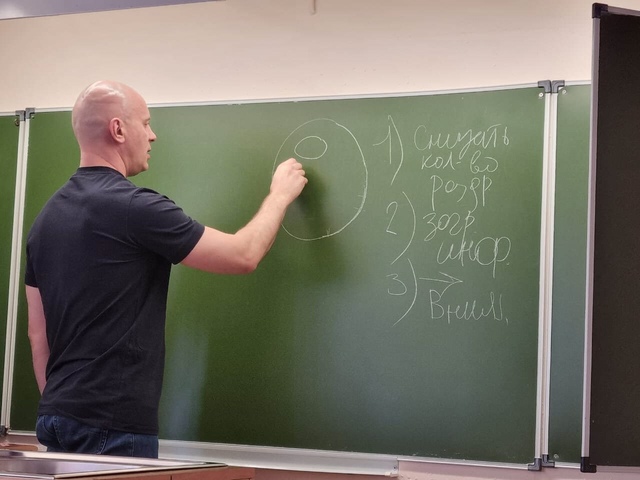 1) Снизать
кол-во
раздр
2) загр.
инфор.
3) →
Вним.